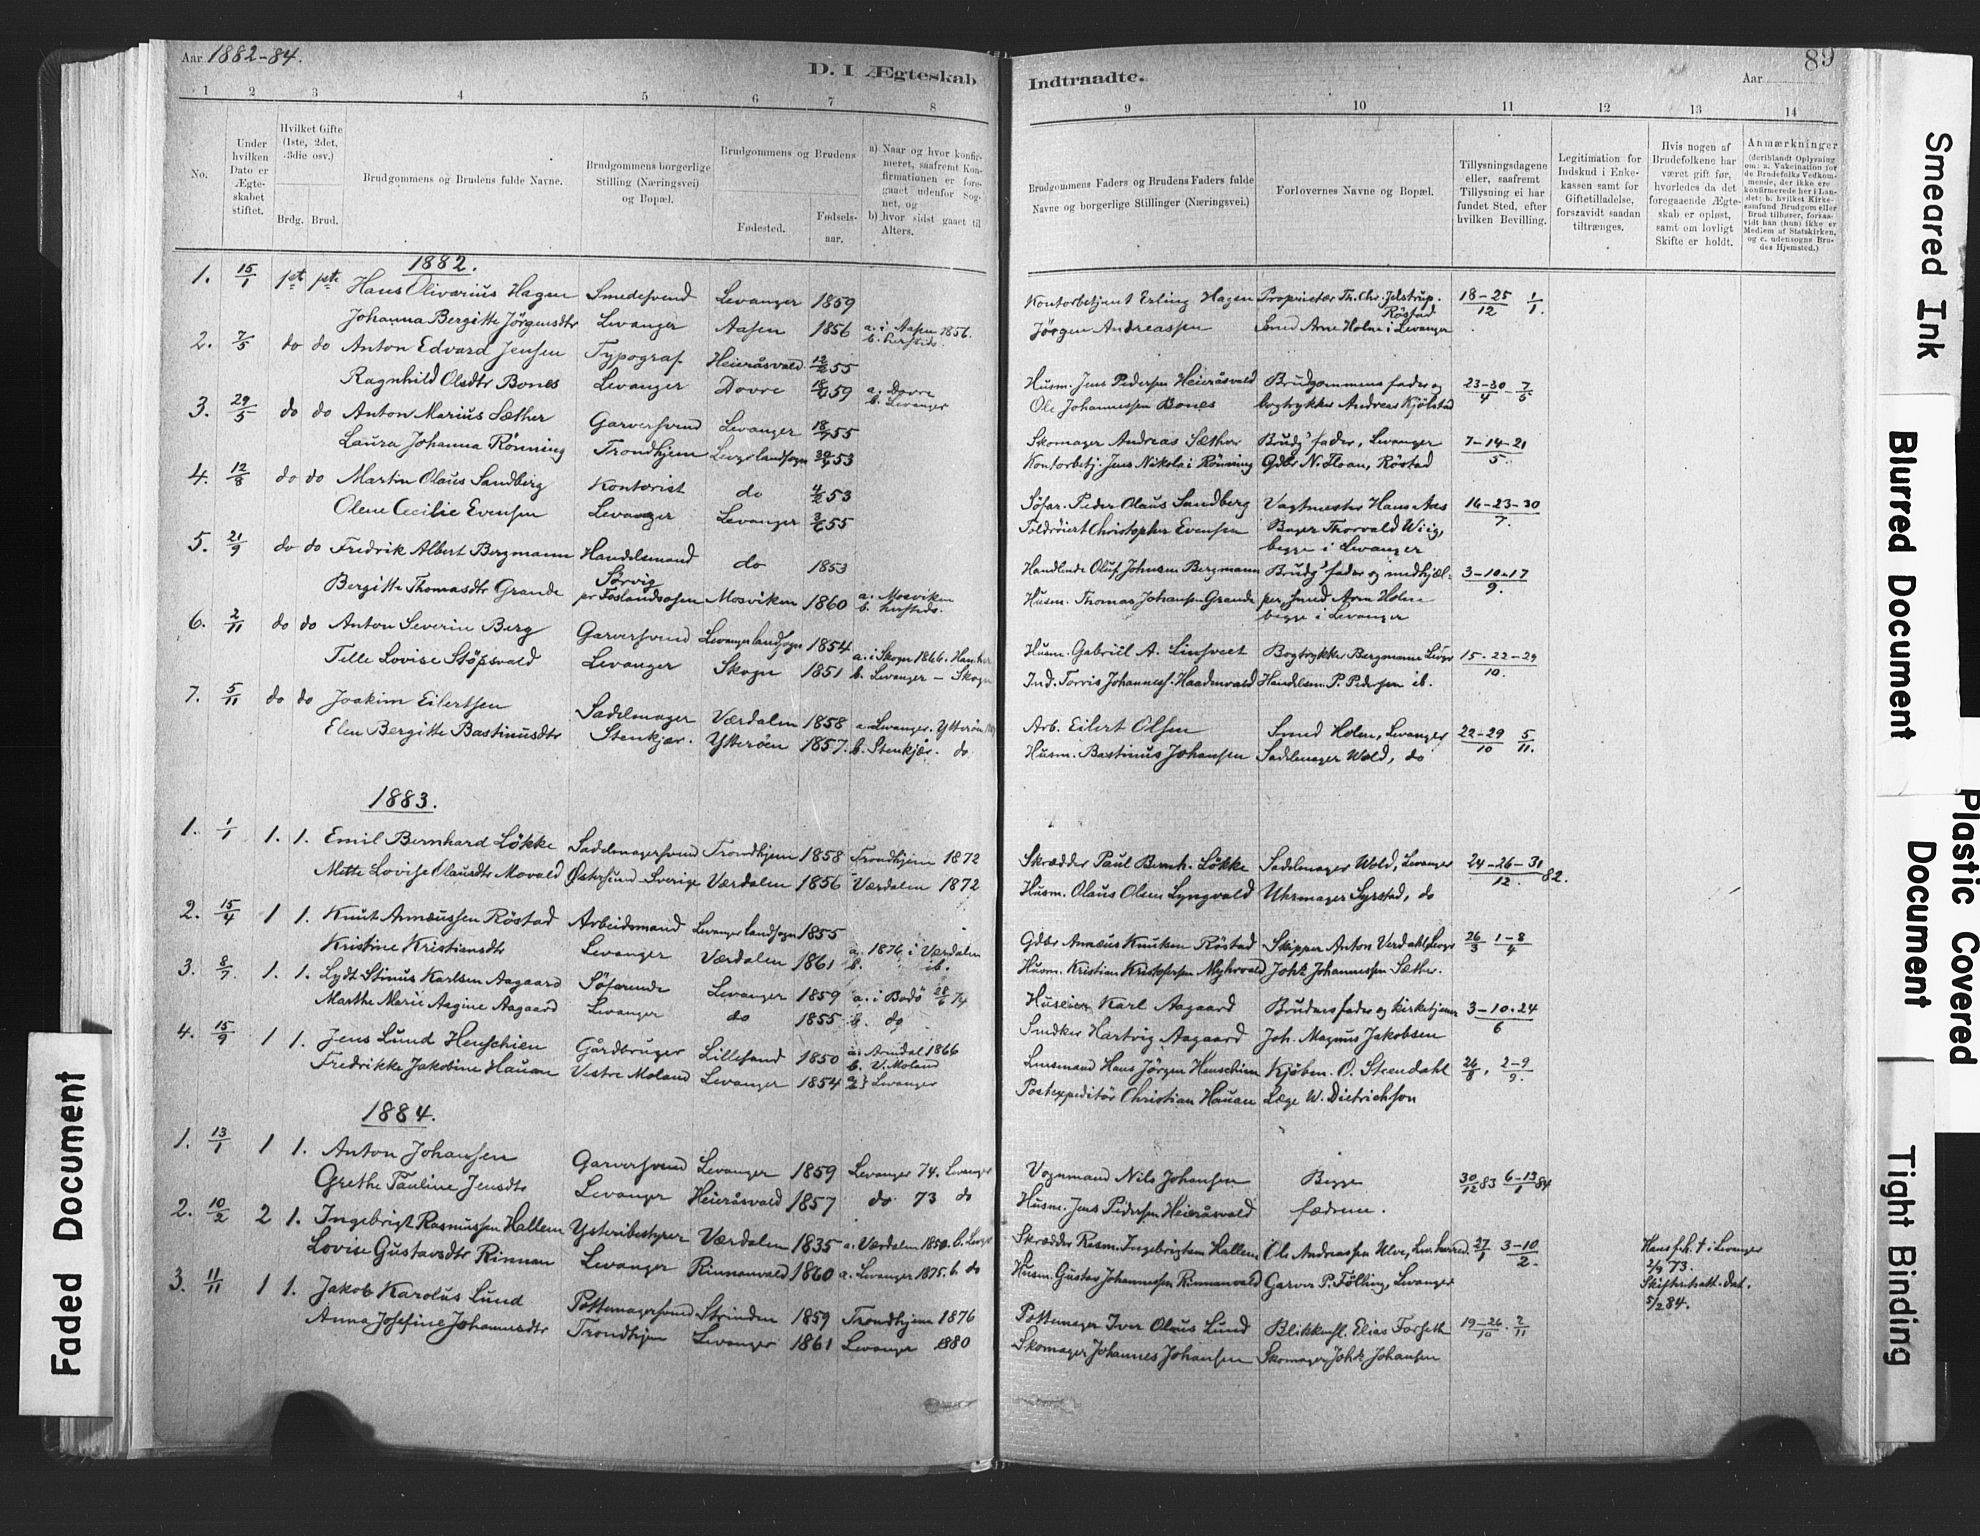 Aar 1882-84.
D. I Ægteskab
1 2 3 4 5 6 7 8
No.
Under hvilken Dato er Ægteskabet stiftet.
Hvilket Gifte (1ste, 2det, 3die osv.)
Brdg. Brud.
Brudgommens og Brudens fulde Navne.
Brudgommens borgerlige Stilling (Næringsvei) og Bopæl.
Brudgommens og Brudens
Fødested. Fødselsaar.
a) Naar og hvor konfirmeret, saafremt Konfirmationen er foregaaet udenfor Sognet, og
b) hvor sidst gaaet til Alters.
1882.
1. 15/1 1ste 1ste Hans Olivarius Hagen Smedesvend Levanger 1859
Johanna Bergitte Jörgensdtr Levanger Aasen 1856 a. i Aasen 1856. b. hersteds.
2. 7/5 do do Anton Edvard Jensen Typograf Heieråsvald 12/2 55
Ragnhild Olsdtr Bones Levanger Dovre 18/1 59 a. Dovre b. Levanger
3. 29/5 do do Anton Marius Sæther Garversvend Levanger 18/7 55
Laura Johanna Rönning Trondhjem Levgr landsogn 30/4 53
4. 12/8 do do Martin Olaus Sandberg Kontorist do 4/2 53
Olene Cecilie Evensen Levanger Levanger 3/6 55
5. 21/9 do do Fredrik Albert Bergmann Handelsmand do 1853
Sörvig
Bergitte Thomasdtr Grande pr Foslandsosen Mosviken 1860 a. Mosviken b. hersteds.
6. 2/11 do do Anton Severin Berg Garversvend Levanger landsogn 1854
Telle Lovise Stöpsvald Levanger Skogn 1851 a. i Skogn 1866. b. Levanger - Skogn
7. 5/11 do do Joakim Eilertsen Sadelmager Værdalen 1858 a. Levanger. Ytterön
Elen Bergitte Bastinusdtr Stenkjær. Ytterøen 1857. b. Stenkjær. do
1883.
1. 1/1 1. 1. Emil Bernhard Lökke Sadelmagersvend Trondhjem 1858 Trondhjem 1872
Mette Lovise Olausdtr Movald Östersund Sverige Værdalen 1856 Værdalen 1872
2. 15/4 1 1. Knut Annæussen Röstad Arbeidsmand Levanger landsogn 1855
Kristine Kristiansdtr Levanger Værdalen 1861 a. 1876 i Værdalen b. ib.
3. 8/7 1. 1. Lydt Stinus Karlsen Aagaard Söfarende Levanger 1859 a. i Bodö 28/6 74
Marthe Marie Aagine Aagaard Levanger do 1855 b. do
4. 15/9 1 1. Jens Lund Henschien Gårdbruger Lillesand 1850 a. Arendal 1866 b. V. Moland
Fredrikke Jakobine Hauan Vestre Moland Levanger 1854 Levanger
1884.
1. 13/1 1 1. Anton Johansen Garversvend Levanger 1859 Levanger 74. Levanger
Grethe Pauline Jensdtr Levanger Heieråsvald 1857 do 73 do
2. 10/2 2 1. Ingebrigt Rasmussen Hallem Ysteribestyrer Værdalen 1835 a. Værdalen 1850. b. Levgr
Lovise Gustavsdtr Rinnan Levanger Rinnanvald 1860 a. Levanger 1875. b. do
3. 11/11 1 1. Jakob Karolus Lund Pottemagersvend Strinden 1859 Trondhjem 1876
Anna Josefine Johannesdtr Trondhjem Levanger 1861 Levanger 1880
Indtraadte.
89
Aar
9 10 11 12 13 14
Brudgommens Faders og Brudens Faders fulde Navne og borgerlige Stillinger (Næringsvei.)
Forlovernes Navne og Bopæl.
Tillysningsdagene eller, saafremt Tillysning ei har fundet Sted, efter hvilken Bevilling.
Legitimation for Indskud i Enkekassen samt for Giftetilladelse, forsaavidt saadan tiltrænges.
Hvis nogen af Brudefolkene har været gift før, hvorledes da det foregaaende Ægteskab er opløst, samt om lovligt Skifte er holdt.
Anmærkninger (deriblandt Oplysning om: a. Vakcination for de Brudefolks Vedkommende, der ikke ere konfirmerede her i Landet; b. hvilket Kirkesamfund Brudgom eller Brud tilhører, forsaavidt han (hun) ikke er Medlem af Statskirken, og c. udensogns Brudes Hjemsted.)
Kontorbetjent Erling Hagen Proprietær Th. Chr. Jelstrup. Röstad 18-25/12 1/1.
Jörgen Andreassen Smed Arne Holme i Levanger
Husm. Jens Pedersen Heieråsvald Brudgommens fader og 23-30/4 - 7/5
Ole Johannessen Bones bogtrykker Andreas Kjölstad
Skomager Andreas Sæther Brudg' fader, Levanger 7-14-21/5.
Kontorbetj. Jens Nikolai Rönning Gdbr N. Floan, Röstad
Söfar. Peder Olaus Sandberg Vagtmester Hans Aas 16-23-30/7.
Toldröiert Christopher Evensen Bager Thorvald Wiig, begge i Levanger
Handlende Oluf Johnsen Bergmann Brudg' fader og medhjæl- 3-10-17/9.
Husm. Thomas Johans. Grande per, smed Arne Holme begge i Levanger
Husm. Gabriil A. Linsveet Bogtrykker Bergmann Levgr 15-22-29/10.
Ind. Torris Johanness. Haadenvald Handelsm. P. Pedersen ib.
Arb. Eilert Olsen Smed Holm, Levanger 22-29/10 5/11.
Husm. Bastinus Johansen Sadelmager Wold, do
Skrædder Paul Bernh. Lökke Sadelmager Wold, Levanger 24-26-31/12. 82.
Husm. Olaus Olsen Lyngvald Uhrmager Syrstad, do
Gdbr Annæus Knutsen Röstad Skipper Anton Verdahl, Levgr 26/3 1-8/4
Husm. Kristian Kristofersen Myhrvald Johs. Johannessen Sæther.
Huseier Karl Aagaard Brudens fader og kirketjener 3-10-24/6
Snedker Hartvig Aagaard Joh. Magnus Jakobsen
Lensmand Hans Jörgen Henschien Kjöbm. O. Steendahl 26/8, 2-9/9.
Postexpeditör Christian Hauan Læge W. Dietrichson
Vognmand Nils Johansen Begge 30/12 83 6-13/1 84
Husm. Jens Pedersen Heieråsvald fædrene.
Skrædder Rasm. Ingebrigtsen Hallem Ole Andreassen Ulve, 27/1 3-10/2.
Husm. Gustav Johannessen Rinnanvald Garver P. Fölling, Levanger
Hans f.h. † i Levanger 2/9 73. Skifteratt. dat. 5/2 84.
Pottemager Iver Olaus Lund Blikkensl. Elias Forseth 19-26/10. 2/11
Skomager Johannes Johansen Skomager Johs. Johansen
Smeared Ink
Blurred Document
Plastic Covered Document
Tight Binding
Faded Document